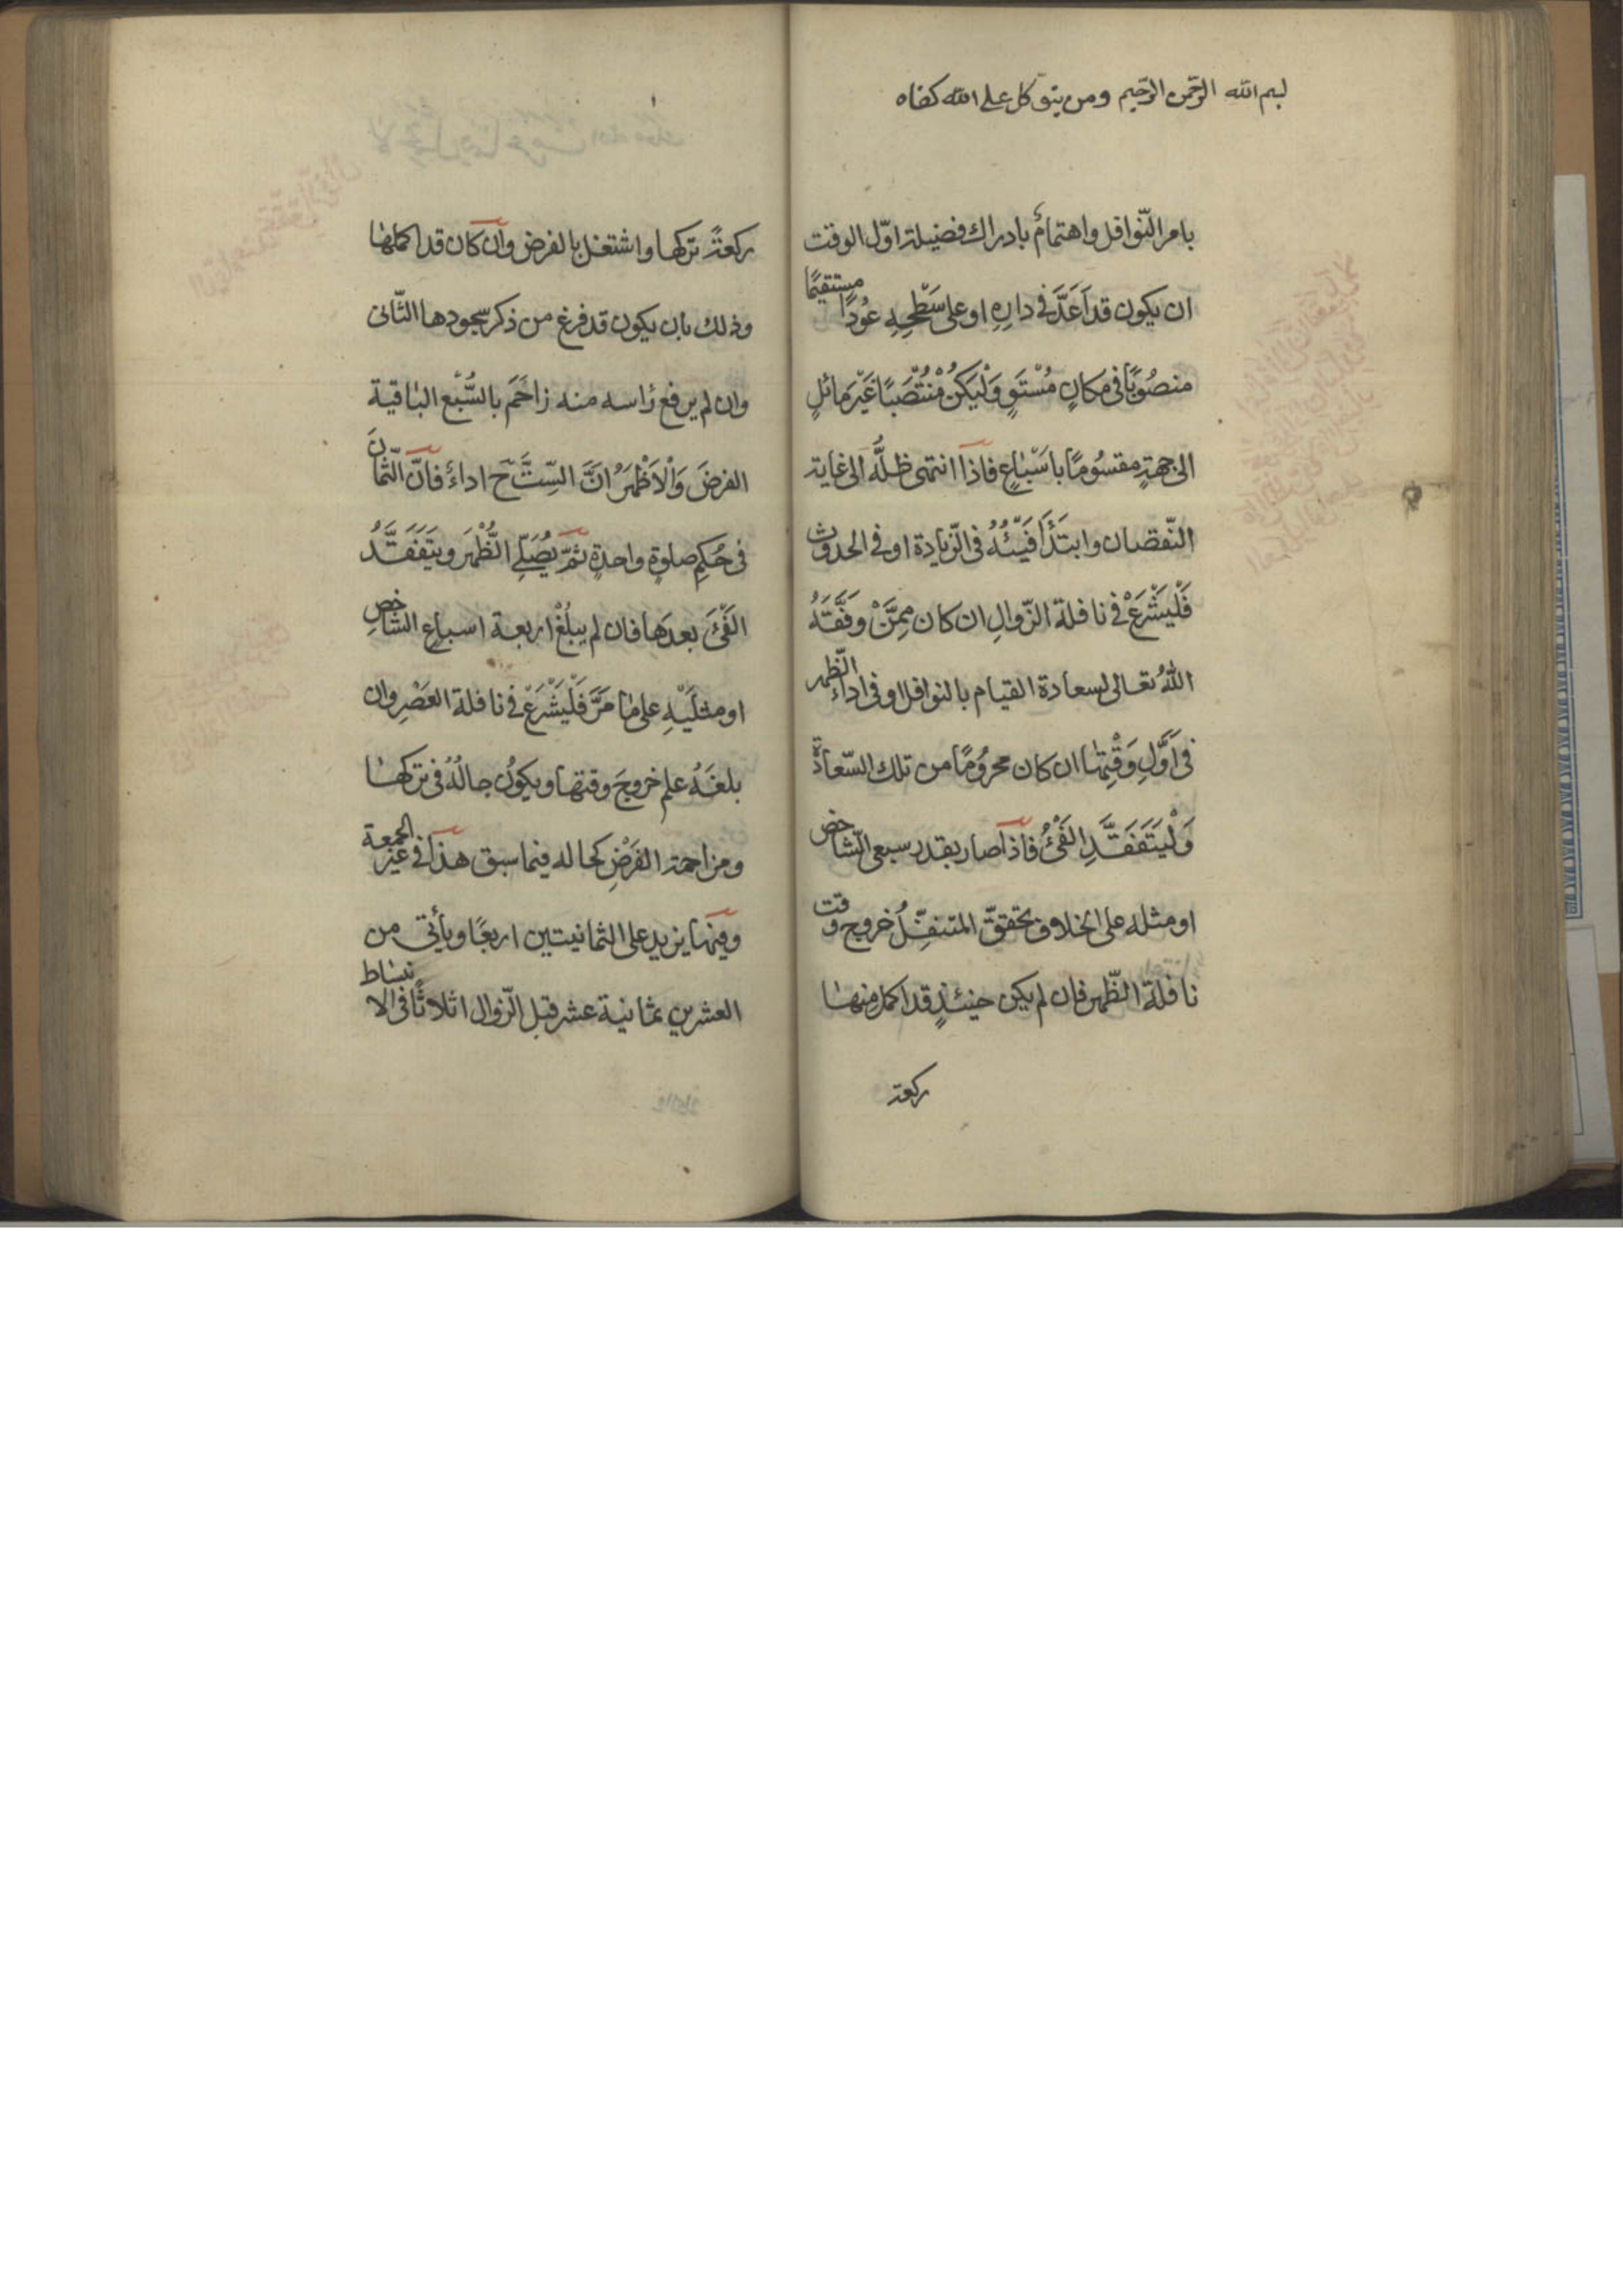 بسم الله الرحمن الرحيم ومن يتوكل على الله كفاه
بامر النّوافل واهتمامٌ بادراك فضيلة اوّل الوقت
ان يكون قد اَعَدَّ فى دارِهِ او على سَطْحِهِ عُودًا مستقيمًا
منصُوبًا فى مكانٍ مُسْتَوٍ وَلْيَكُنْ مُنْتَصَبًا غَيْرَ مائلٍ
الى جهةٍ مقسُومًا باَسْبٰاعٍ فاذا انتهى ظلُّه الى غاية
النّقصان وابتَدَاَ فَيْئُهُ فى الزّيادة او فى الحدوث
فَلْيَشْرَعْ فى نافلة الزّوالِ ان كان مِمَّنْ وَفَّقَهُ
اللهُ تعالى لسعادة القيام بالنوافل او فى اداءِ الظّهر
فى اَوَّلِ وَقْتِهٰا ان كان محرُومًا من تلك السّعادة
وَلْيَتَفَقَّدِ الفَيْئَ فاذا صار بقدر سبعى الشّاخص
او مثله على الخلاف تحقّق المتنفِّلُ خروج وقت
نافلة الظّهر فان لم يكن حينئذٍ قد اكمل منهٰا
ركعة
ركعةً تركها واشتغل بالفرض وان كان قد اكملهٰا
وذلك بان يكون قد فرغ من ذكر سجودها الثّانى
وان لم يرفع رٰاسه منه زاحَمَ بالسَّبْع البٰاقية
الفرضَ وَالْاَظْهَرُ انَّ السِّتَّ ح اداءٌ فانّ الثّمانَ
فى حُكمِ صلوةٍ واحدةٍ ثمّ يُصَلّى الظُّهْرَ ويَتَفَقَّدُ
الفَيْئَ بعدَها فان لم يبلُغْ اربعة اسباع الشّاخصِ
او مثلَيْهِ على مٰا مَرَّ فَلْيَشْرَعْ فى نافلة العَصْرِ وان
بلغَهُ علم خروجَ وقتها ويكونُ حالُهُ فى تركهٰا
ومزاحمة الفَرْضِ كحاله فيما سبق هذا فى غير الجمعة
وفيهٰا يزيد على الثمانيتين اربعًا ويأتى من
العشرين بثمانية عشر قبل الزّوال اثلاثًا فى الانبساط